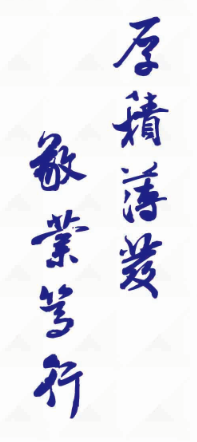 厚積薄發
敬業篤行